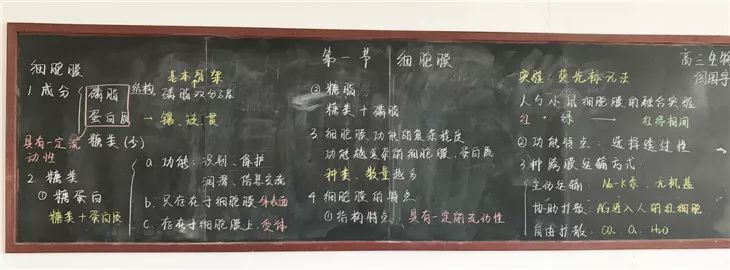 第一节 细胞膜
高三生物
细胞膜
1 成分
磷脂 结构 磷脂双分子层
基本骨架
蛋白质 → 镶、嵌、贯
糖类(少)
具有一定流动性
2. 糖类
① 糖蛋白
糖类+蛋白质
a. 功能:识别、保护
润滑、信息交流
b. 只存在于细胞膜外表面
c. 存在于细胞膜上,受体
② 糖脂
糖类+磷脂
3. 细胞膜功能的复杂程度
功能越复杂的细胞膜,蛋白质
种类、数量越多
4 细胞膜的特点
①结构特点:具有一定的流动性
实验:荧光标记法
人与小鼠细胞膜的融合实验
红 + 绿 → 红绿相间
②功能特点:选择透过性
3种跨膜运输方式
主动运输:Na-K泵、无机盐
协助扩散:AG进入人的红细胞
自由扩散:CO₂ O₂ H₂O